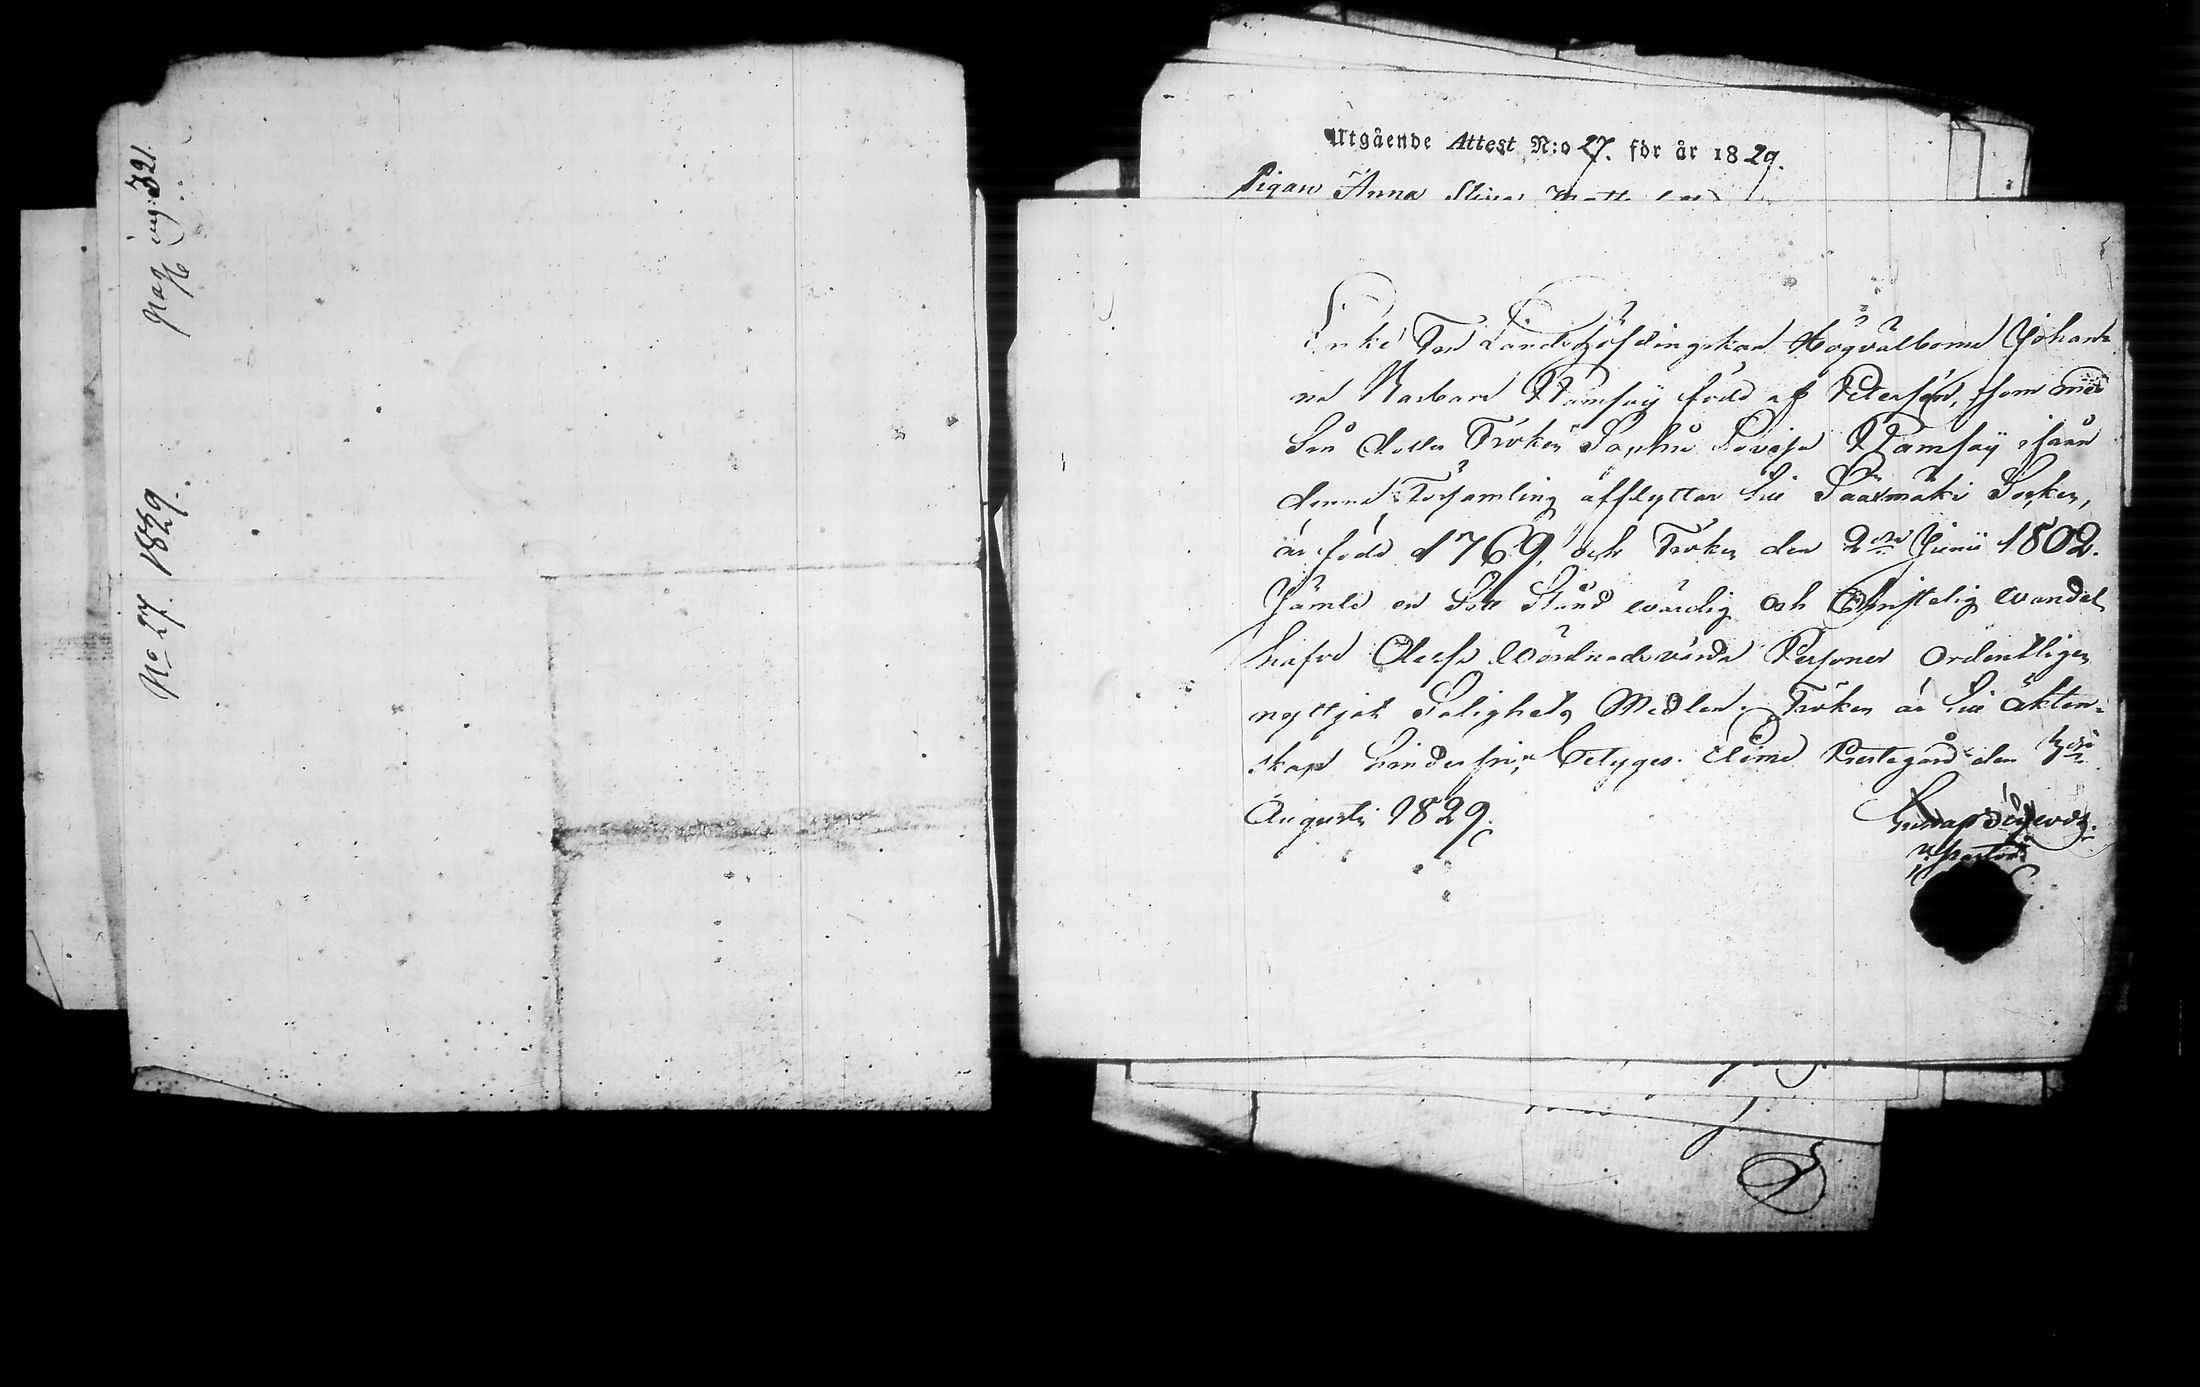 pag ing: 321.
No 27. 1829.
Utgående Attest N:o 27. för år 1829.
Pigan Anna Stina
Enke Fru Landshöfdingskan Högvälborna Johan-
na Barbara Ramsay född af Petersén, som med
Sin dotter Fröken Sophie Lovisa Ramsay ifrån
denna Församling afflyttar till Sääxmäki Socken,
är född 1769, och Fröken den 2dra Junii 1802.
Jämte en Sitt Stånd värdig och Christelig vandel
hafva Dessa Wördnadsvärda Personer Ordentligen
nyttjat Salighets Medlen. Fröken är till äkten-
skap hinderfri, betyges. Elimä Prestegård den
Augusti 1829.